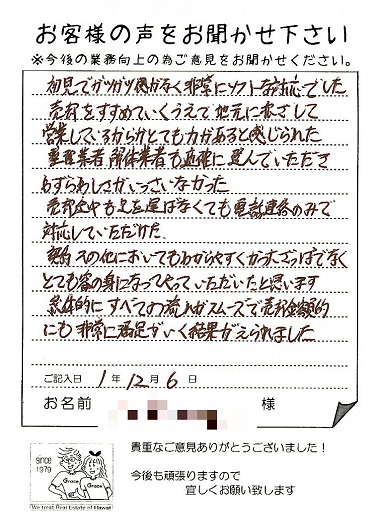 お客様の声をお聞かせ下さい
※今後の業務向上の為ご意見をお聞かせください。
初見でガツガツ感がなく非常にソフトな対応でした
売却をすすめていくうえで地元に根ざして
営業しているからかとても力があると感じられた
整理業者 解体業者も適確に選んでいただき
わずらわしさがいっさいなかった
売却途中も足を運ばなくても電話連絡のみで
対応していただけた
契約 その他においてもわかりやすく
とても客の身になってやっていただいたと思います
総体的にすべての流れがスムーズで売却金額的
にも非常に満足がいく結果がえられました
ご記入日 1年 12月 6日
お名前 様
since
1979
Grace Grace
We treat Real Estate of Hawaii
貴重なご意見ありがとうございました！
今後も頑張りますので
宜しくお願い致します